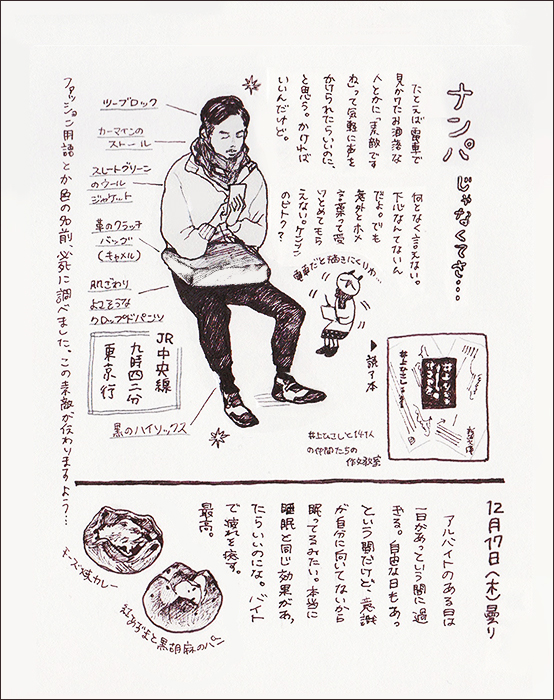 ナンパじゃなくてさ…
たとえば電車で
見かけたお洒落な
人とかに「素敵です
ね」って気軽に声を
かけられたらいいのに、
と思う。かければ
いいんだけど。
何となく言えない。
下心なんてないん
だよ。でも
意外とホメ
言葉って受
けとめてもら
えない。ケンソン
のビトク?
電車だと描きにくいわ…
▶読了本
井上ひさしと141人
の仲間たちの
作文教室
ツーブロック
カーマインの
ストール
スレートグリーン
のウール
ジャケット
革のクラッチ
バッグ
(キャメル)
肌ざわり
よさそうな
クロップドパンツ
JR中央線
九時四二分
東京行
黒のハイソックス
ファッション用語とか色の名前、必死に調べました。この素敵が伝わりますよう…
12月17日(木)曇り
アルバイトのある日は
一日があっという間に過
ぎる。自由な日もあっ
という間だけど、意識
が自分に向いてないから
眠ってるみたい。本当に
睡眠と同じ効果があっ
たらいいのにな。バイト
で疲れを癒す。
最高。
カレー
紅あずまと黒胡麻のパン